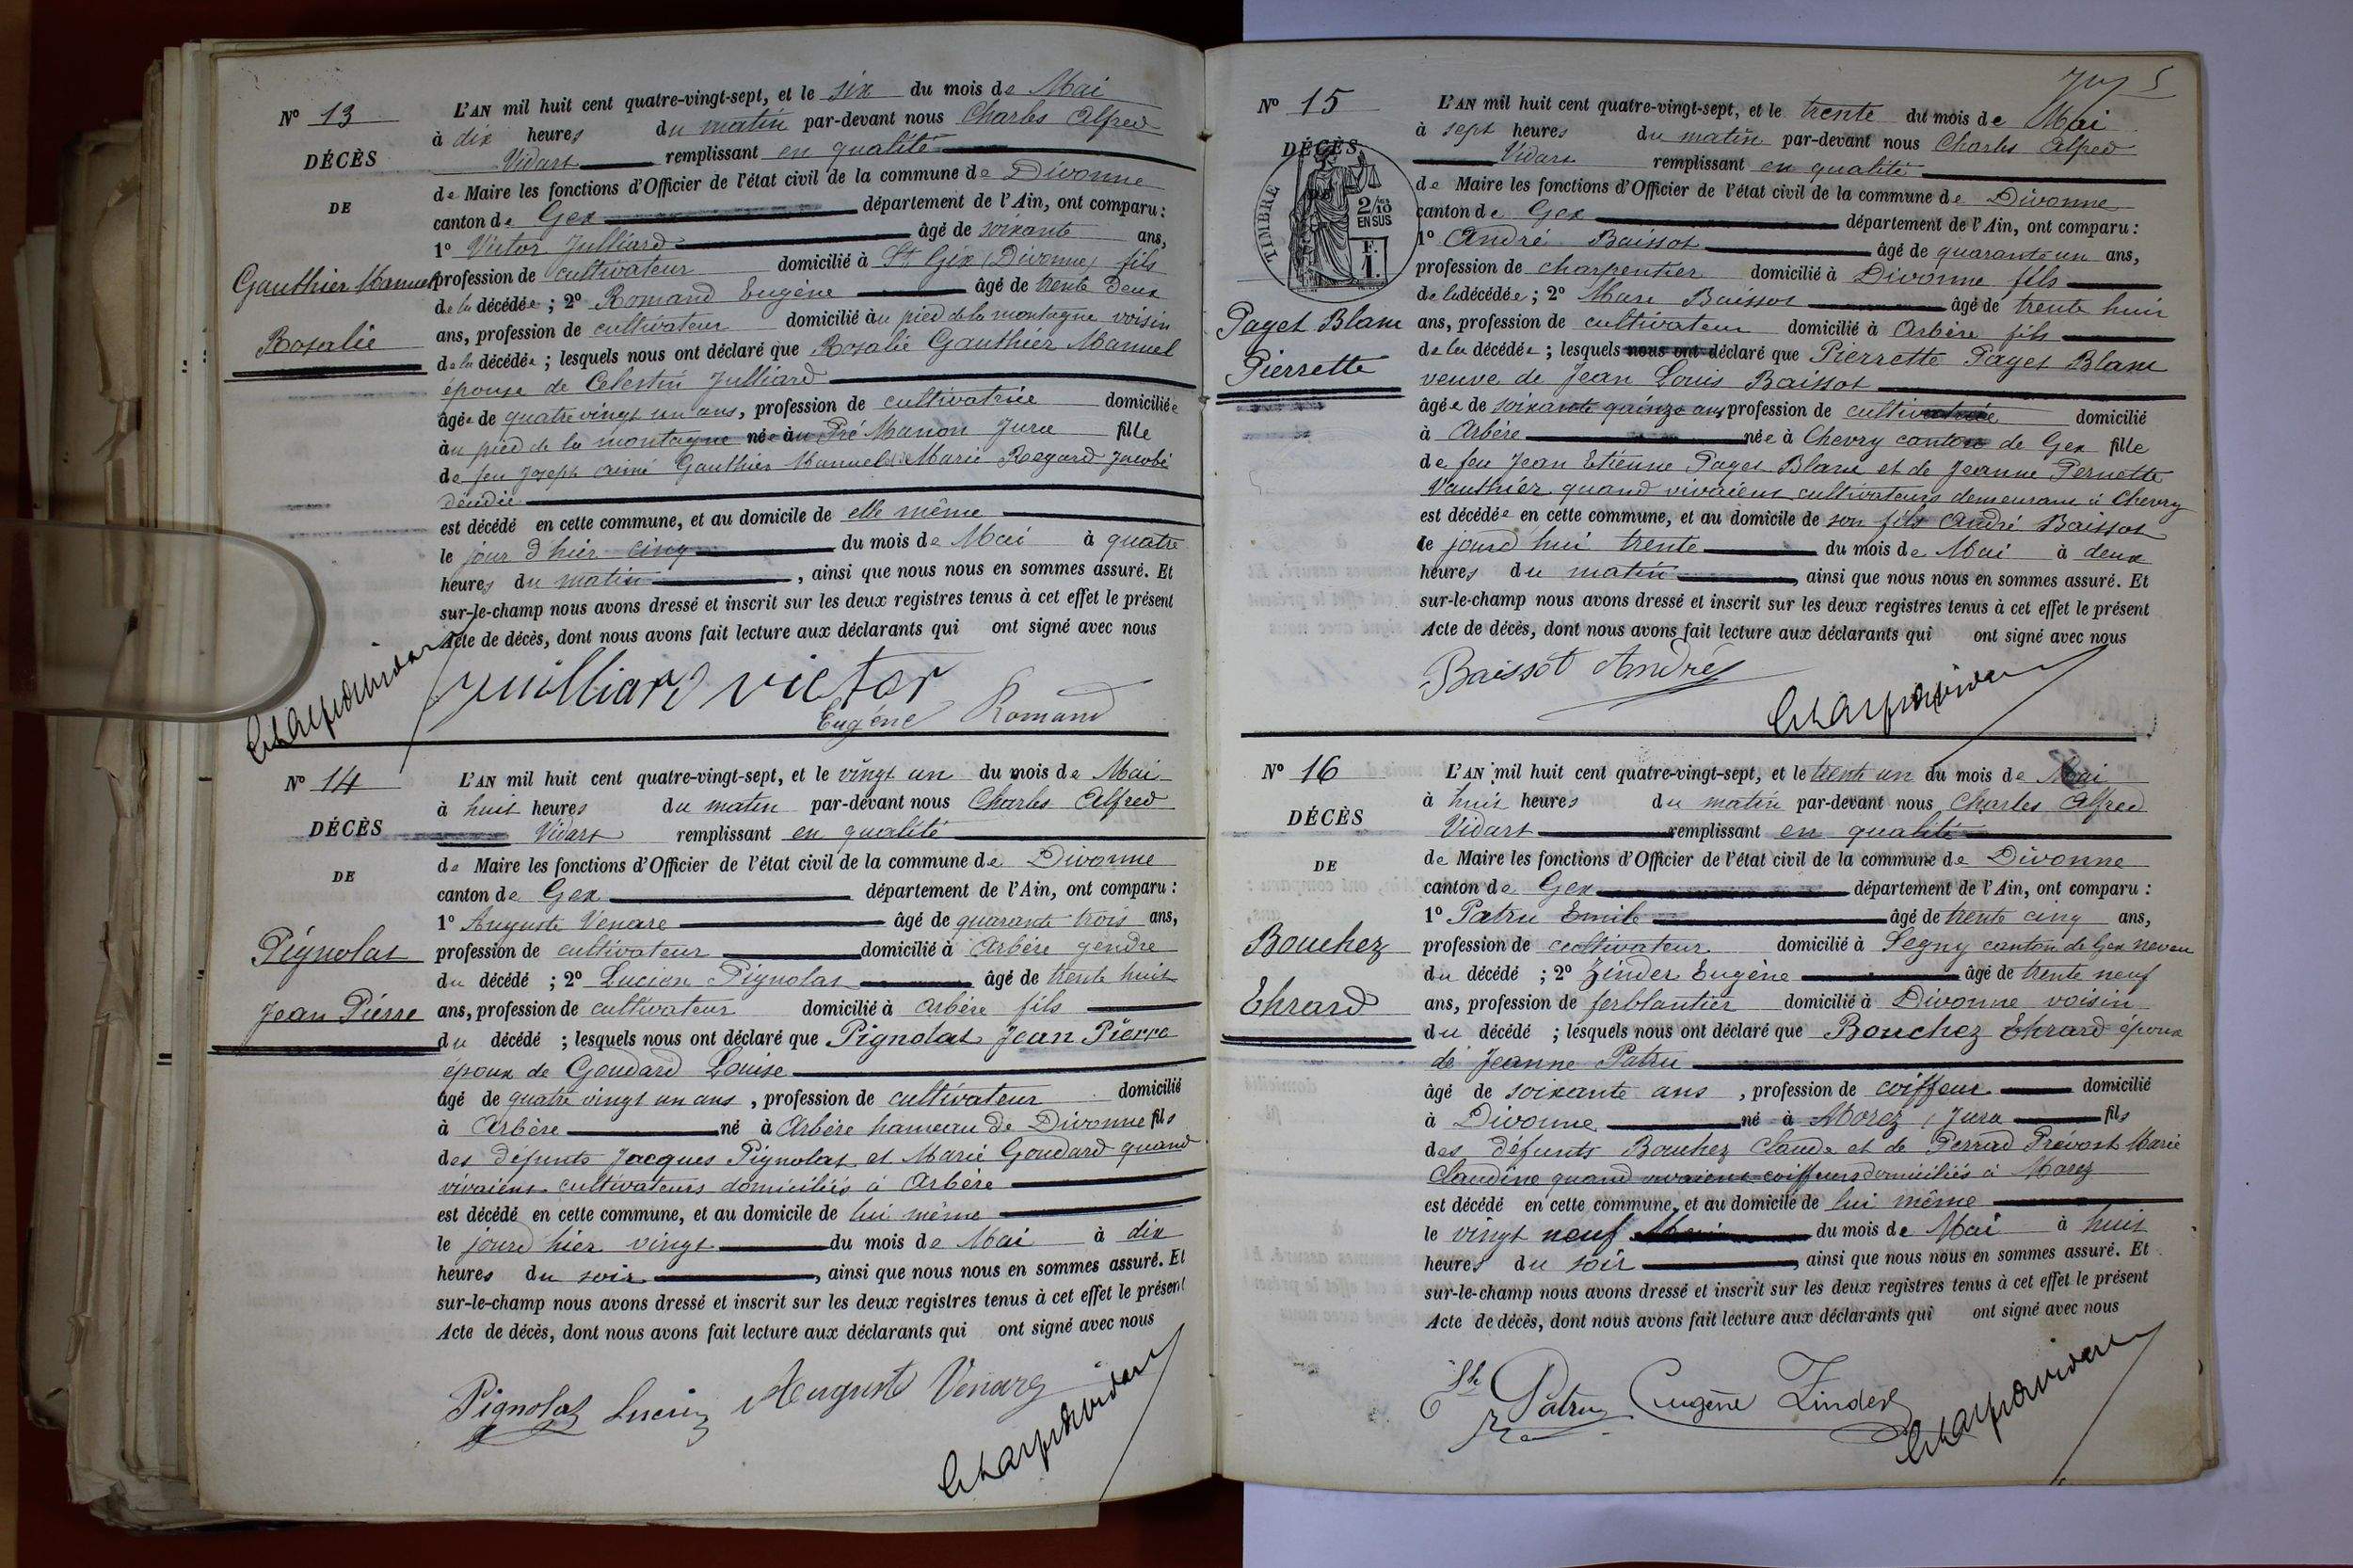 N° 13
DÉCÈS
DE
Gauthier Manuel
Rosalie
L'AN mil huit cent quatre-vingt-sept, et le six du mois de Mai
à dix heures du matin par-devant nous Charles Alfred
Vidart remplissant en qualité
de Maire les fonctions d'Officier de l'état civil de la commune de Divonne
canton de Gex département de l'Ain, ont comparu :
1° Victor Julliard âgé de soixante ans,
profession de cultivateur domicilié à St Gix (Divonne) fils
de la décédée ; 2° Romand Eugène âgé de trente deux
ans, profession de cultivateur domicilié au pied de la montagne voisin
de la décédée ; lesquels nous ont déclaré que Rosalie Gauthier Manuel
épouse de Celestin Julliard
âgée de quatre vingt un ans, profession de cultivatrice domiciliée
au pied de la montagne née au Pré Manon Jura fille
de feu Joseph Aimé Gauthier Manuel Marie Regard Jacobé
est décédé en cette commune, et au domicile de elle même
le jour d'hier cinq du mois de Mai à quatre
heures du matin, ainsi que nous nous en sommes assuré. Et
sur-le-champ nous avons dressé et inscrit sur les deux registres tenus à cet effet le présent
Acte de décès, dont nous avons fait lecture aux déclarants qui ont signé avec nous
Juilliard victor
Eugène Romand
N° 14
DÉCÈS
DE
Pignolat
Jean Pierre
L'AN mil huit cent quatre-vingt-sept, et le vingt un du mois de Mai
à huit heures du matin par-devant nous Charles Alfred
Vidart remplissant en qualité
de Maire les fonctions d'Officier de l'état civil de la commune de Divonne
canton de Gex département de l'Ain, ont comparu :
1° Auguste Venare âgé de quarante trois ans,
profession de cultivateur domicilié à Arbère gendre
du décédé ; 2° Lucien Pignolat âgé de trente huit
ans, profession de cultivateur domicilié à Arbère fils
du décédé ; lesquels nous ont déclaré que Pignolat Jean Pierre
époux de Goudard Louise
âgé de quatre vingt un ans, profession de cultivateur domicilié
à Arbère né à Arbère hameau de Divonne fils
des défunts Jacques Pignolat et Marie Goudard quand
vivaient cultivateurs domiciliés à Arbère
est décédé en cette commune, et au domicile de lui même
le jourd hier vingt du mois de Mai à dix
heures du soir, ainsi que nous nous en sommes assuré. Et
sur-le-champ nous avons dressé et inscrit sur les deux registres tenus à cet effet le présent
Acte de décès, dont nous avons fait lecture aux déclarants qui ont signé avec nous
Pignolat Lucien Auguste Venare
5
N° 15
DÉCÈS
TIMBRE
2/10
EN SUS
F.
1.
Paget Blanc
Pierrette
L'AN mil huit cent quatre-vingt-sept, et le trente du mois de Mai
à sept heures du matin par-devant nous Charles Alfred
Vidart remplissant en qualité
de Maire les fonctions d'Officier de l'état civil de la commune de Divonne
canton de Gex département de l'Ain, ont comparu :
1° André Baissot âgé de quarante un ans,
profession de charpentier domicilié à Divonne fils
de la décédée ; 2° Marc Baissot âgé de trente huit
ans, profession de cultivateur domicilié à Arbère fils
de la décédée ; lesquels nous ont déclaré que Pierrette Paget Blanc
veuve de Jean Louis Baissot
âgée de soixante quinze ans profession de cultivatrice domicilié
à Arbère née à Chevry canton de Gex fille
de feu Jean Etienne Paget Blanc et de Jeanne Pernette
Vauthier quand vivaient cultivateurs demeurant à Chevry
est décédée en cette commune, et au domicile de son fils André Baissot
le jourd hui trente du mois de Mai à deux
heures du matin, ainsi que nous nous en sommes assuré. Et
sur-le-champ nous avons dressé et inscrit sur les deux registres tenus à cet effet le présent
Acte de décès, dont nous avons fait lecture aux déclarants qui ont signé avec nous
Baissot André
N° 16
DÉCÈS
DE
Bouchez
Ehrard
L'AN mil huit cent quatre-vingt-sept, et le trente un du mois de Mai
à huit heures du matin par-devant nous Charles Alfred
Vidart remplissant en qualité
de Maire les fonctions d'Officier de l'état civil de la commune de Divonne
canton de Gex département de l'Ain, ont comparu :
1° Patru Emile âgé de trente cinq ans,
profession de cultivateur domicilié à Segny canton de Gex neveu
du décédé ; 2° Zinder Eugène âgé de trente neuf
ans, profession de ferblantier domicilié à Divonne voisin
du décédé ; lesquels nous ont déclaré que Bouchez Ehrard époux
de Jeanne Patru
âgé de soixante ans, profession de coiffeur domicilié
à Divonne né à Morez (Jura fils
des défunts Bouchez Claude et de Perrad Prévost Marie
Claudine quand vivaient coiffeurs domiciliés à Morez
est décédé en cette commune, et au domicile de lui même
le vingt neuf du mois de Mai à huit
heures du soir, ainsi que nous nous en sommes assuré. Et
sur-le-champ nous avons dressé et inscrit sur les deux registres tenus à cet effet le présent
Acte de décès, dont nous avons fait lecture aux déclarants qui ont signé avec nous
Patru Eugène Zinder